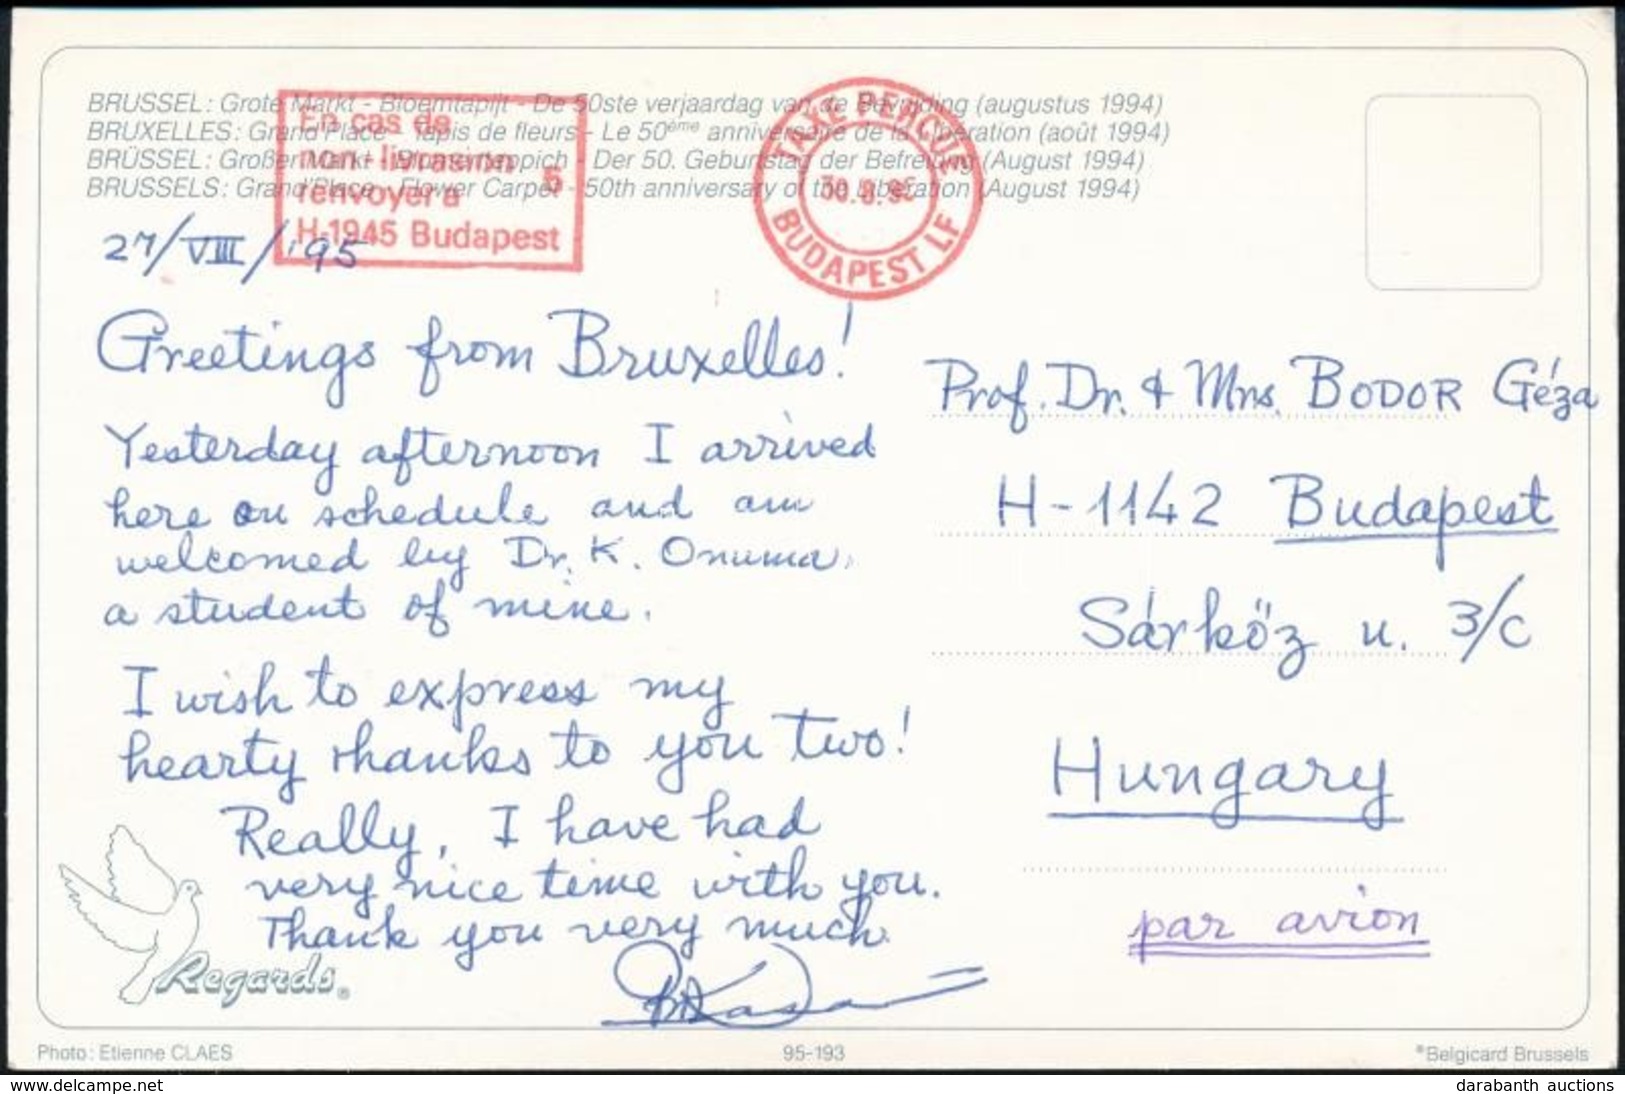 BRUSSEL: Grote Markt - Bloemtapijt - De 50ste verjaardag van de Bevrijding (augustus 1994)
BRUXELLES: Grand'Place - Tapis de fleurs - Le 50ème anniversaire de la Libération (août 1994)
BRÜSSEL: Großer Markt - Blumenteppich - Der 50. Geburtstag der Befreiung (August 1994)
BRUSSELS: Grand'Place - Flower Carpet - 50th anniversary of the Liberation (August 1994)
En cas de
non-livraison
renvoyer à 5
H-1945 Budapest
TAXE PERCUE
BUDAPEST LF
27/VIII/'95
Greetings from Bruxelles!
Yesterday afternoon I arrived
here on schedule and am
welcomed by Dr. K. Onuma,
a student of mine.
I wish to express my
hearty thanks to you two!
Really, I have had
very nice time with you.
Thank you very much.
Prof. Dr. & Mrs. BODOR Géza
H-1142 Budapest
Sárköz u. 3/c
Hungary
par avion
Regards®
Photo: Etienne CLAES
95-193
®Belgicard Brussels
www.delcampe.net
darabanth auctions